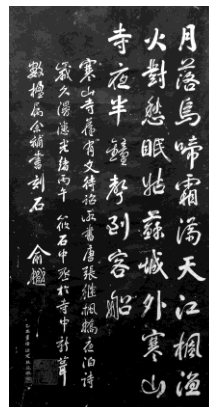 月落烏啼霜滿天江楓漁
火對愁眠姑蘇城外寒山
寺夜半鐘聲到客船
寒山寺舊有文待詔所書唐張繼楓橋夜泊詩
歲久漫漶光緒丙午 筱石中丞於寺中新葺
數楹屬余補書刻石 俞樾